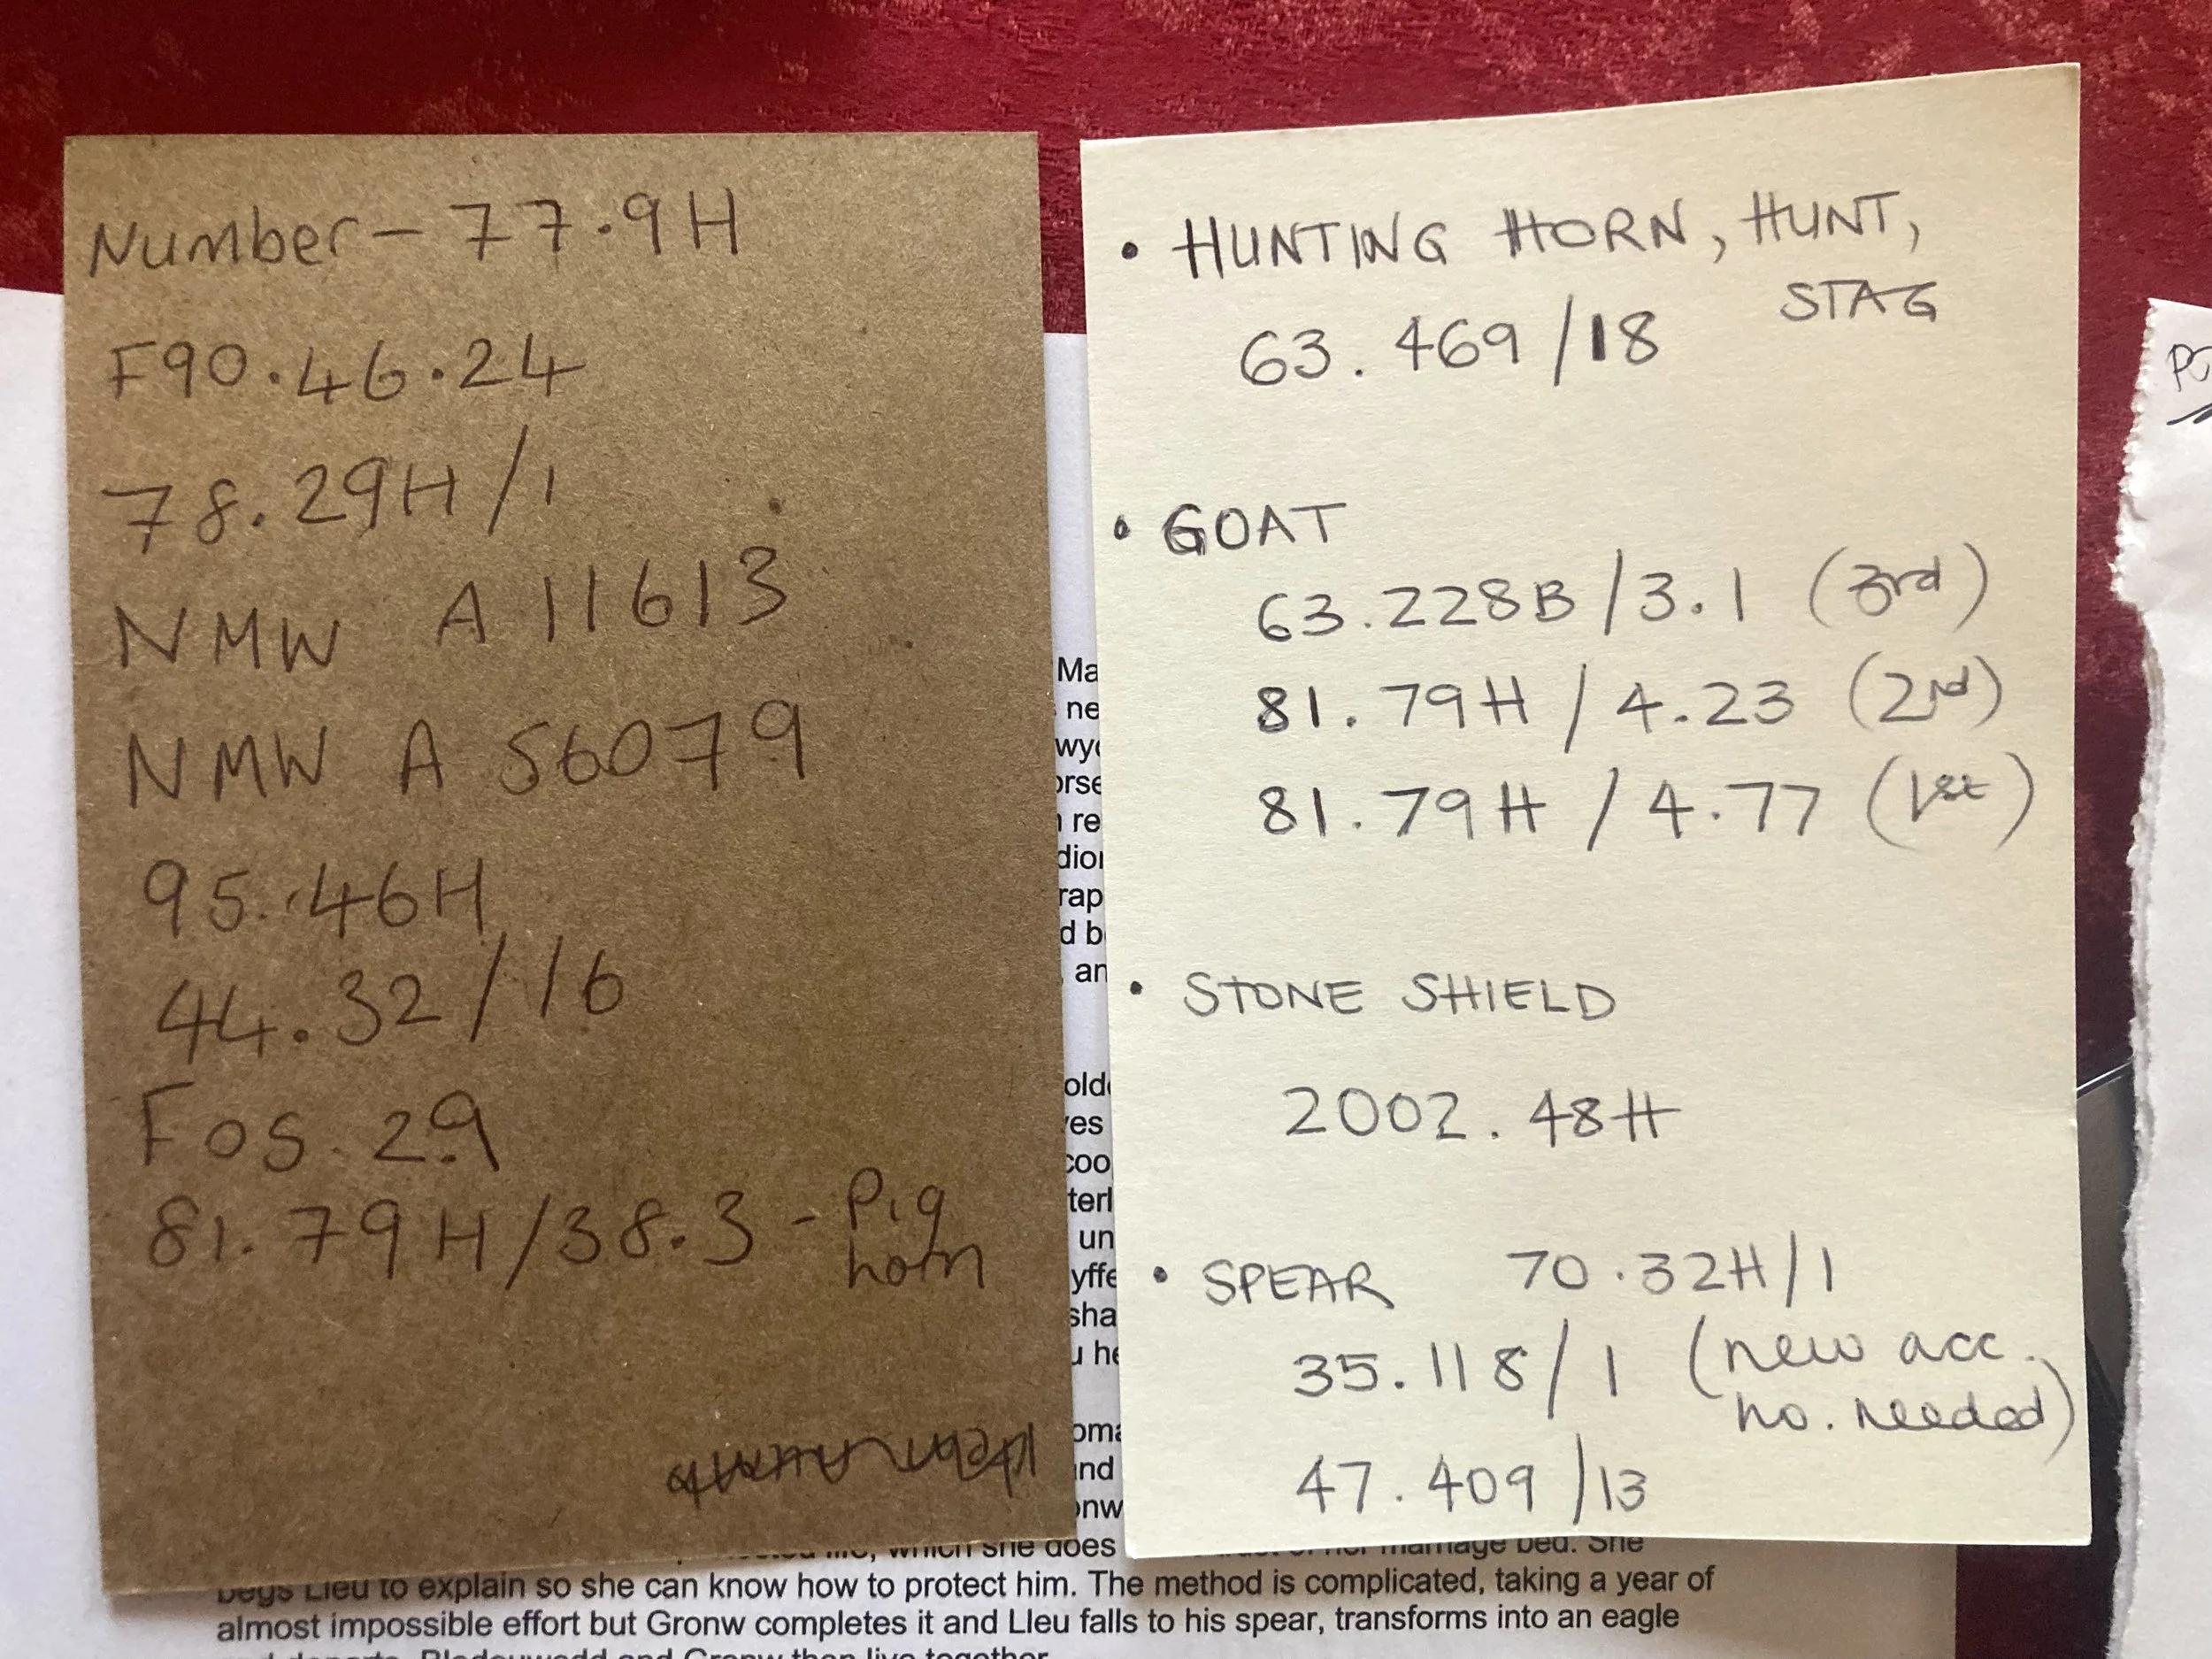 Number – 77.9H
F90.46.24
78.29H/1
NMW A 11613
NMW A 56079
95.46H
44.32/16
F05.29
81.79H/38.3 - Pig
horn
• HUNTING HORN, HUNT,
STAG
63.469/18
• GOAT
63.228B/3.1 (3rd)
81.79H/4.23 (2nd)
81.79H/4.77 (1st)
• STONE SHIELD
2002.48H
• SPEAR 70.32H/1
35.118/1 (new acc.
no. needed)
47.409/13
Ma
ne
wy
orse
re
dio
rap
d b
an
old
es
coo
terl
un
yffe
sha
u he
oma
nd
onw
which she does
marriage bed. She
begs Lleu to explain so she can know how to protect him. The method is complicated, taking a year of
almost impossible effort but Gronw completes it and Lleu falls to his spear, transforms into an eagle
and departs. Blodeuwedd and Gronw then live together